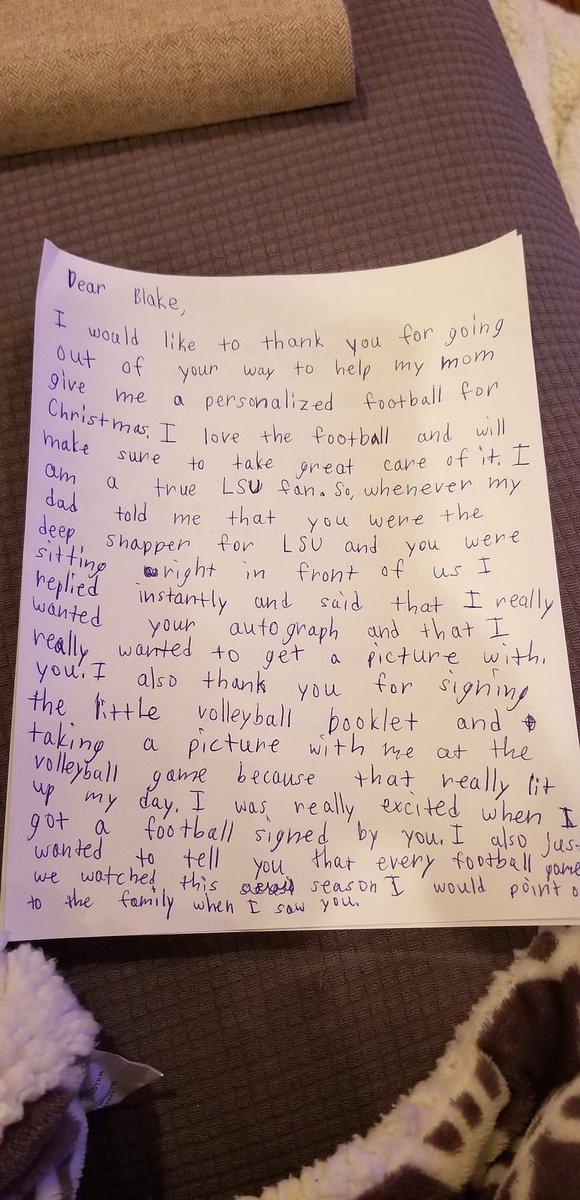 Dear Blake,
I would like to thank you for going
out of your way to help my mom
give me a personalized football for
Christmas. I love the football and will
make sure to take great care of it. I
am a true LSU fan. So, whenever my
dad told me that you were the
deep snapper for LSU and you were
sitting right in front of us I
replied instantly and said that I really
wanted your autograph and that I
really wanted to get a picture with.
you. I also thank you for signing
the little volleyball booklet and
taking a picture with me at the
volleyball game because that really lit
up my day. I was really excited when I
got a football signed by you. I also jus
wanted to tell you that every football game
we watched this season I would point o
to the family when I saw you.